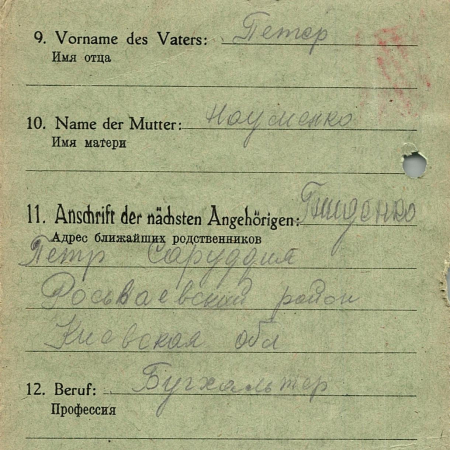 9. Vorname des Vaters: Петер
Имя отца
10. Name der Mutter: Науменко
Имя матери
11. Anschrift der nächsten Angehörigen: Гниденко
Адрес ближайших родственников
Петр
район
Киевская обл
12. Beruf: Бугхальтер
Профессия